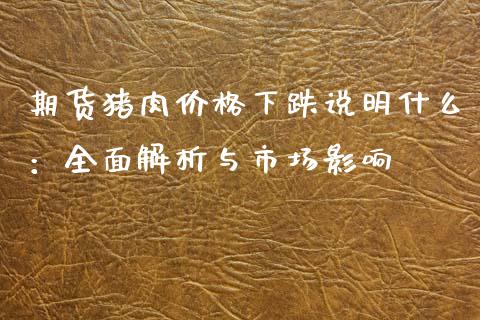 期货猪肉价格下跌说明什么
：全面解析与市场影响